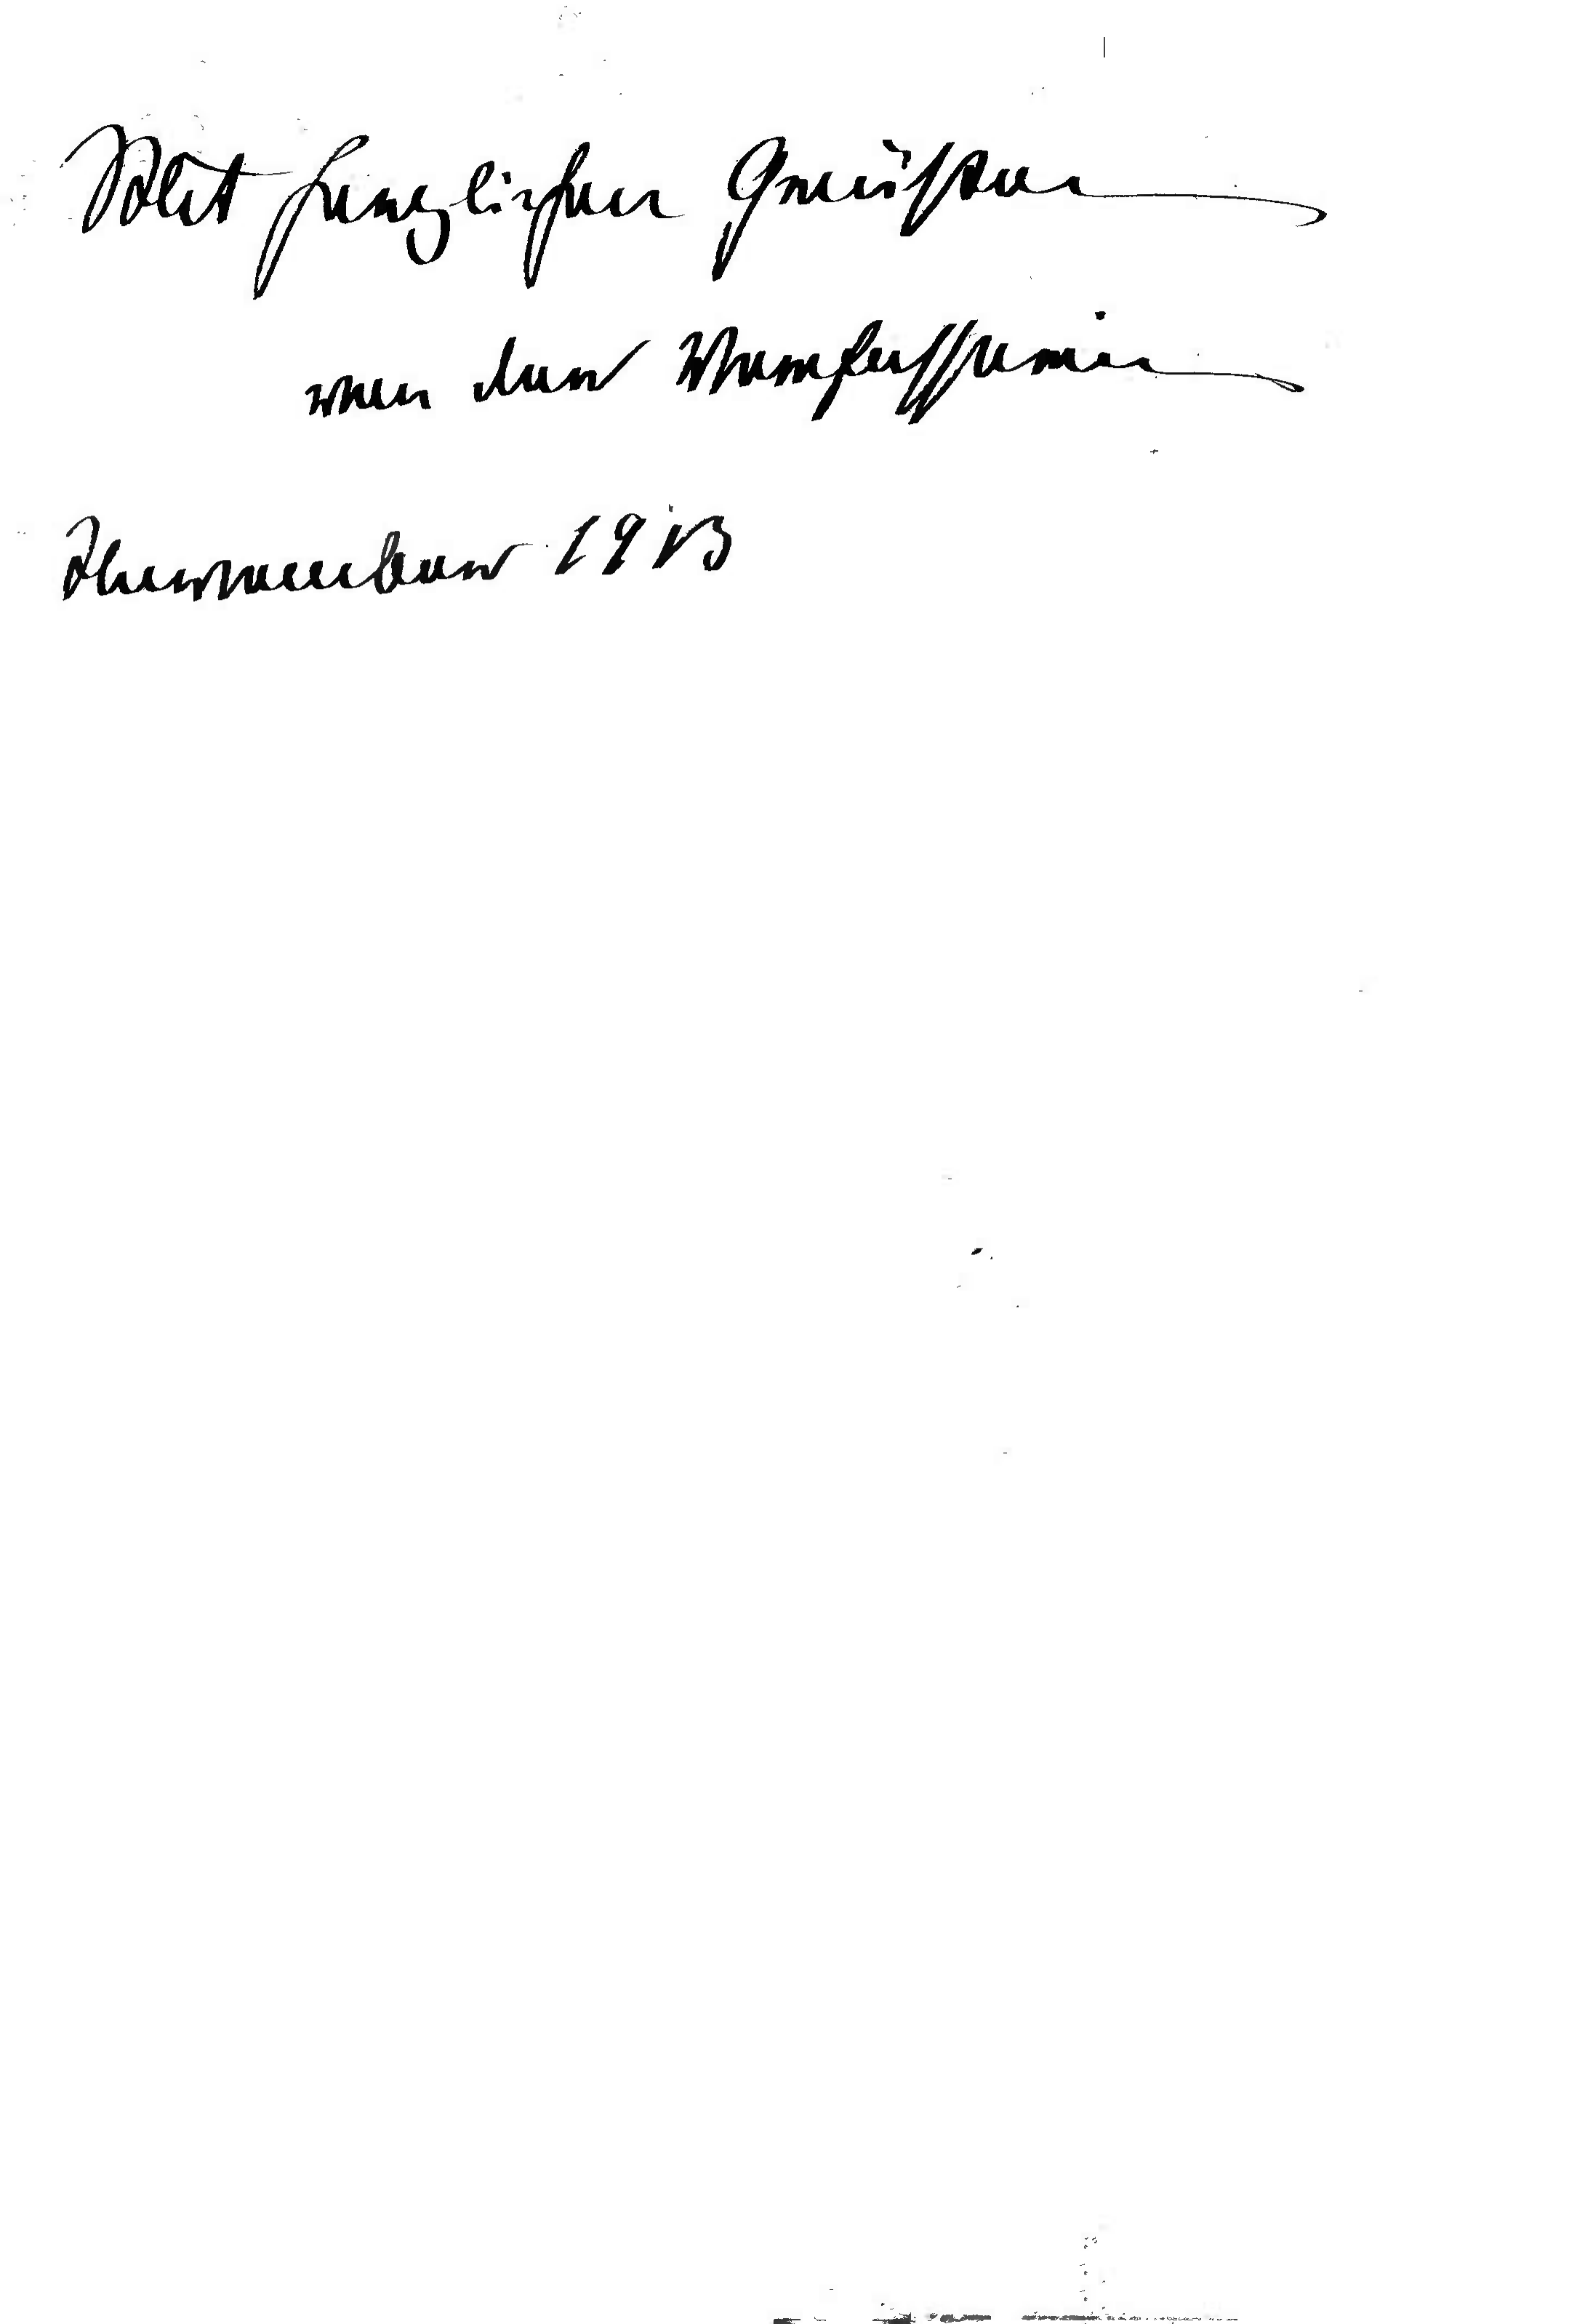 Mit herzlichen Grüßen
von der Verfasserin
November 1913